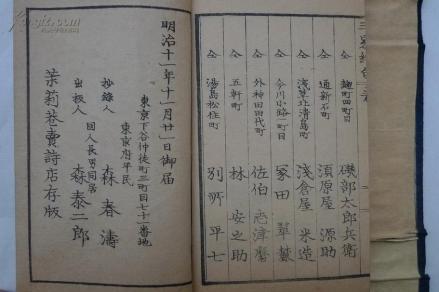 仝 麹町四町目 磯部太郎兵衛
仝 通新石町 須原屋源助
仝 浅草北清島町 浅倉屋米造
仝 今川小路町目 冢田
仝 外神田田代町 佐伯志津磨
仝 五軒町 林安之助
仝 湯島松住町 別所平七
明治十一年十一月廿一日御届
東京下谷仲徒町三町目七十二番地
東京府平民
抄録人 森春濤
同人長男同居
出版人 森泰二郎
茉莉巷賣詩店存版